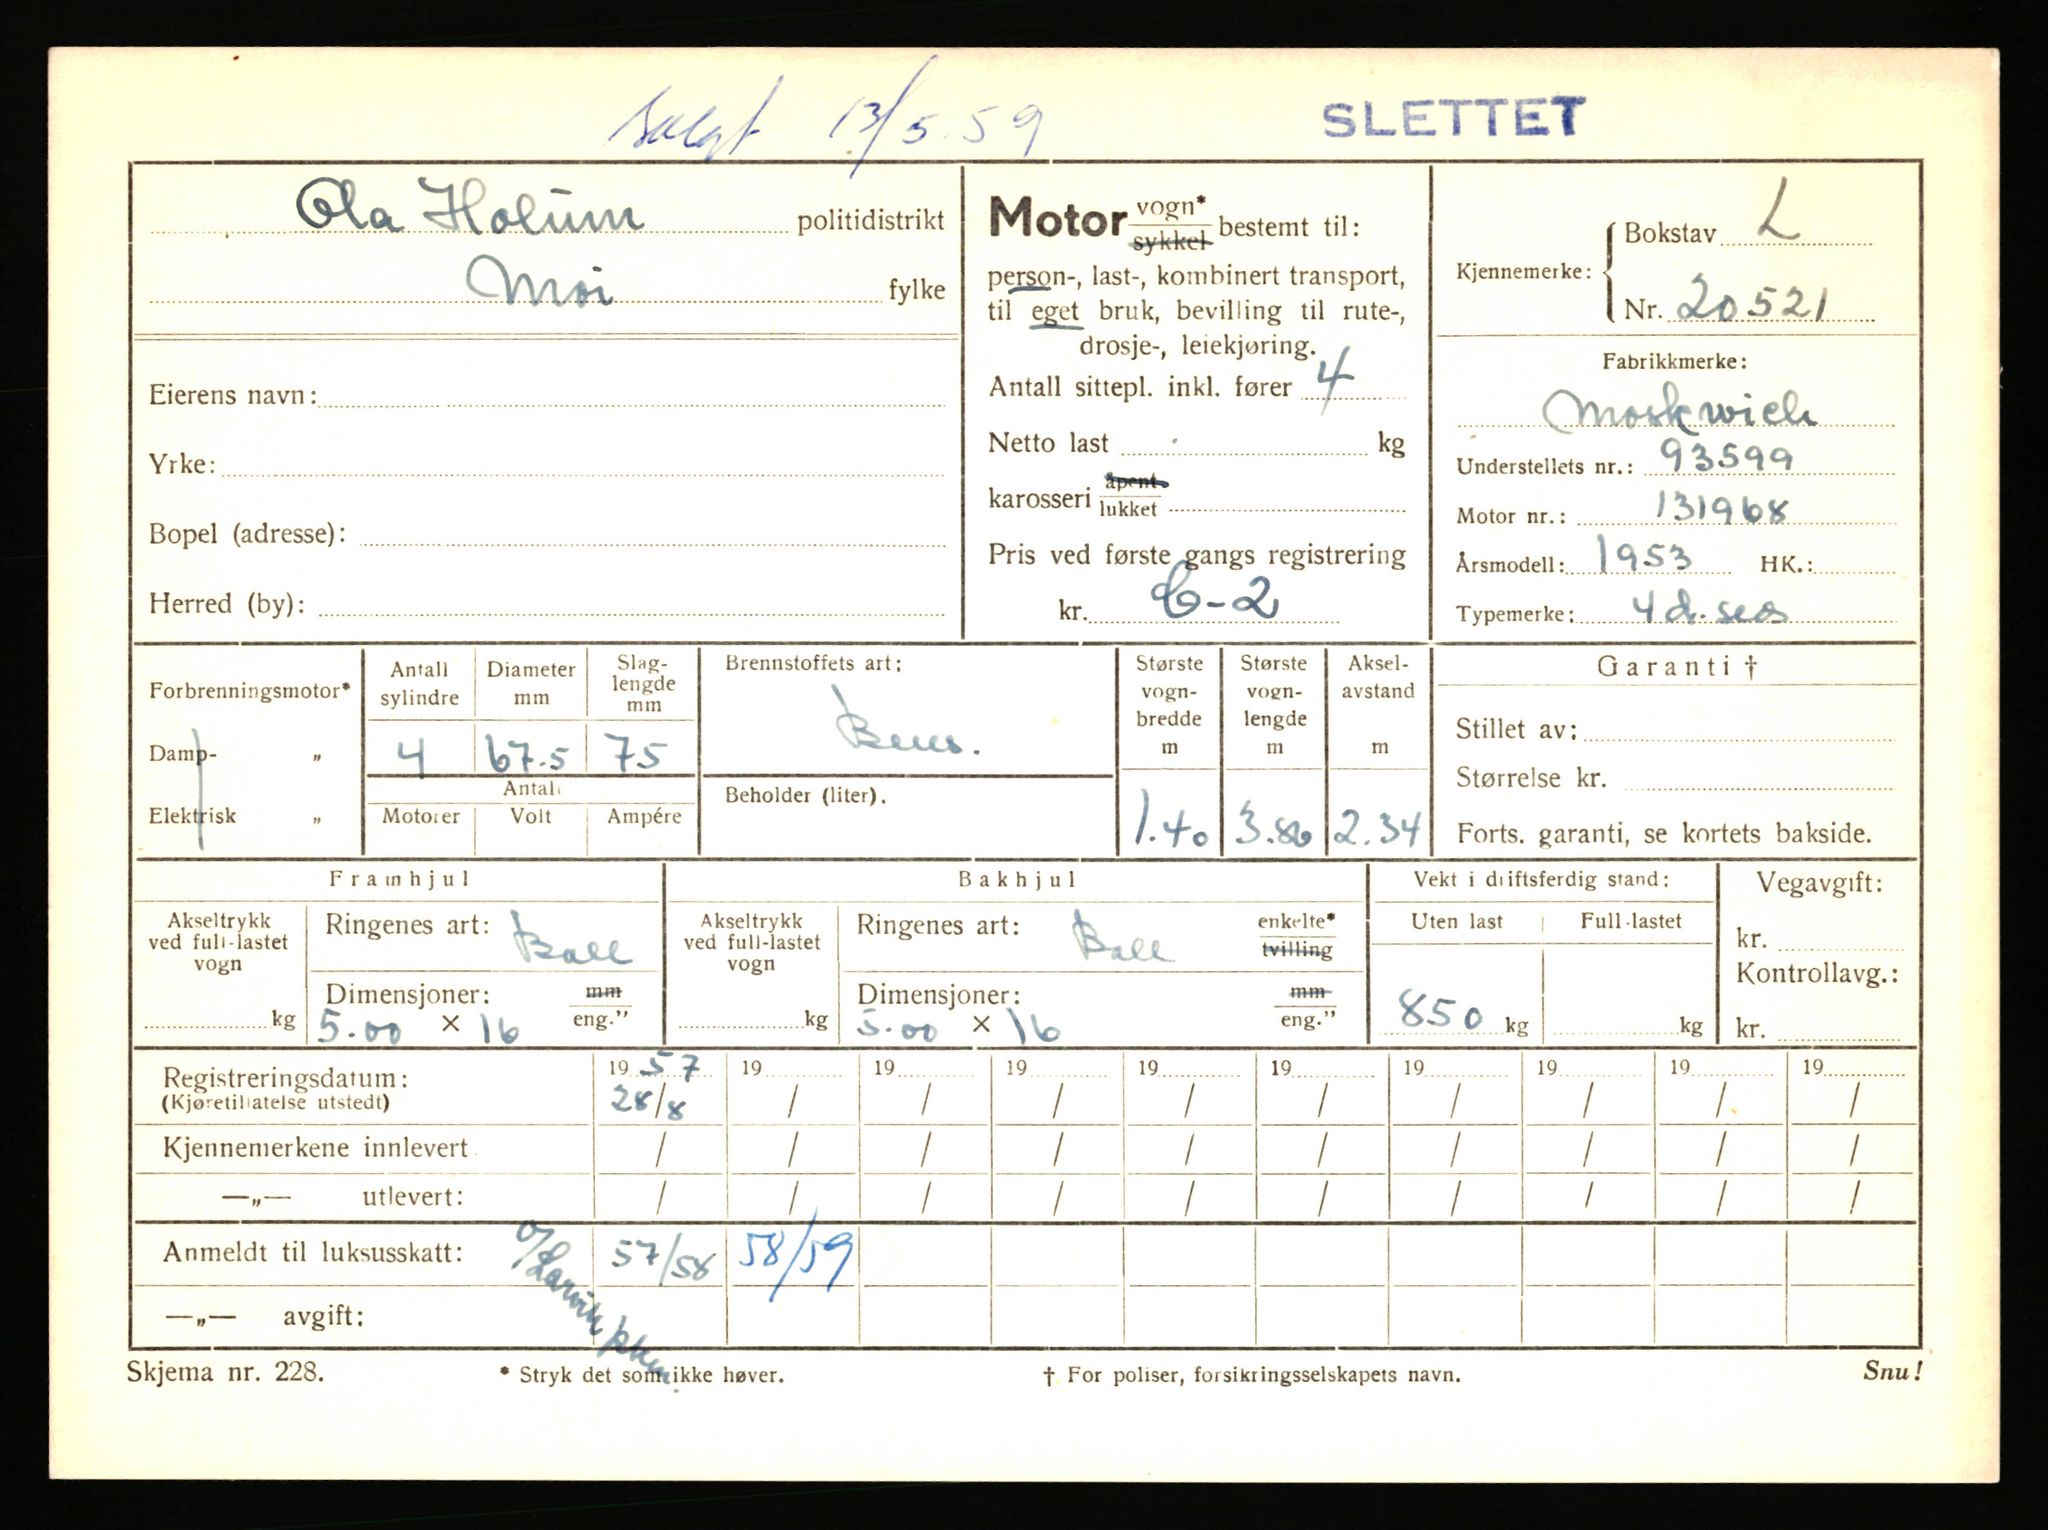 Solgt 13/5.59
SLETTET
Ola Holum politidistrikt
Moi fylke
Eierens navn:
Yrke:
Bopel (adresse):
Herred (by):
Motor vogn* sykkel bestemt til:
person-, last-, kombinert transport,
til eget bruk, bevilling til rute-,
drosje-, leiekjøring.
Antall sittepl. inkl. fører 4
Netto last kg
karosseri åpent lukket
Pris ved første gangs registrering
kr. C-2
Kjennemerke: Bokstav L
Nr. 20521
Fabrikkmerke:
Moskwich
Understellets nr.: 93599
Motor nr.: 131968
Årsmodell: 1953 HK.:
Typemerke: 4 d. seds
Forbrenningsmotor*
Damp- „
Elektrisk „
Antall sylindre
4
Diameter mm
67.5
Slag-lengde mm
75
Antall
Motorer Volt Ampére
Brennstoffets art:
Bens.
Beholder (liter).
Største vogn-bredde m
1.40
Største vogn-lengde m
3.86
Aksel-avstand m
2.34
Garanti †
Stillet av:
Størrelse kr.
Forts. garanti, se kortets bakside.
Framhjul
Akseltrykk ved full-lastet vogn
kg
Ringenes art: Ball
Dimensjoner: mm
5.00 × 16 eng."
Bakhjul
Akseltrykk ved full-lastet vogn
kg
Ringenes art: Ball enkelte* tvilling
Dimensjoner: mm
5.00 × 16 eng."
Vekt i driftsferdig stand:
Uten last Full-lastet
850 kg kg
Vegavgift:
kr.
Kontrollavg.:
kr.
Registreringsdatum: 1957 19 19 19 19 19 19 19 19 19
(Kjøretillatelse utstedt) 28/8 / / / / / / / / /
Kjennemerkene innlevert / / / / / / / / / /
—„— utlevert: / / / / / / / / / /
Anmeldt til luksusskatt: 57/58 58/59
o/Larvik
—„— avgift:
Skjema nr. 228.
* Stryk det som ikke høver.
† For poliser, forsikringsselskapets navn.
Snu!